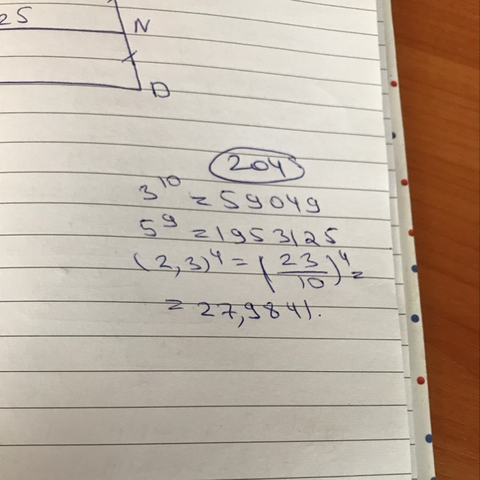 25
N
D
204
3^10 = 59049
5^9 = 1953125
(2,3)^4 = (23/10)^4 =
= 27,9841.